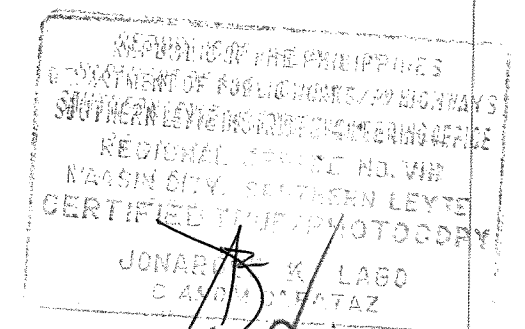 REPUBLIC OF THE PHILIPPINES
DEPARTMENT OF PUBLIC WORKS AND HIGHWAYS
SOUTHERN LEYTE DISTRICT ENGINEERING OFFICE
REGIONAL OFFICE NO. VIII
MAASIN CITY, SOUTHERN LEYTE
CERTIFIED TRUE PHOTOCOPY
K. LAGO